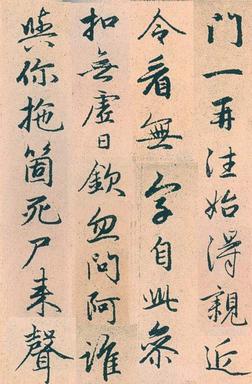 門一再往始得親近
令看無字自此參
扣無虛日欽忽問阿誰
與你拖箇死尸來聲